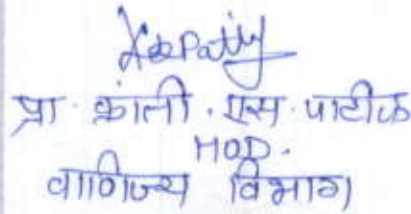 प्रा. क्रांती. एस. पाटील
HOD.
वाणिज्य विभाग